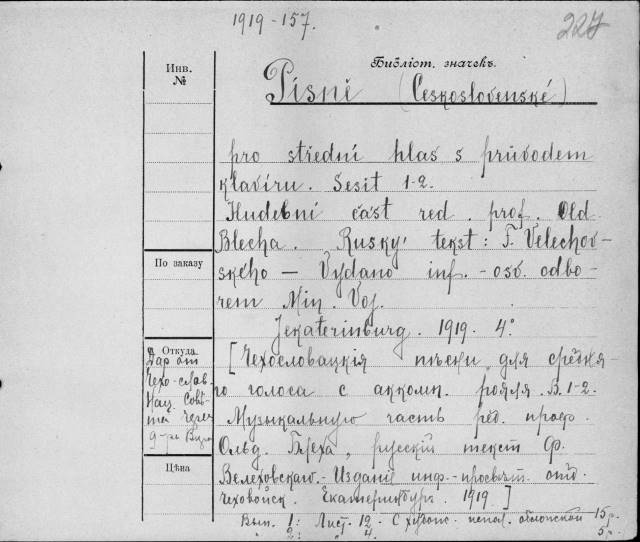 1919-157.
227
Инв. №
Библіот. значекъ.
Písně (Československé)
pro střední hlas s průvodem
klavíru. Sesit 1-2.
Hudební část red. prof. Old.
Blecha. Ruský tekst: F. Velechov-
ského — Vydano inf. - osv. odbo-
rem Min. Voj.
Jekaterinburg. 1919. 4°
По заказу
Откуда.
Дар от
Чехо-слов.
Нац. Совѣ-
та через
[Чехословацкія пѣсни для средня-
го голоса с аккомп. рояля. В. 1-2.
Музыкальную часть ред. проф.
Ольд. Блеха, русскій текст Ф.
Велеховскаго. - Изданіе инф. - просвѣт. отд.
Чеховойск. Екатеринбург. 1919.]
Цѣна
Вып. 1: Лист. 12. С художе. обложкой 15 р.
" 2: " 4. 5 р.